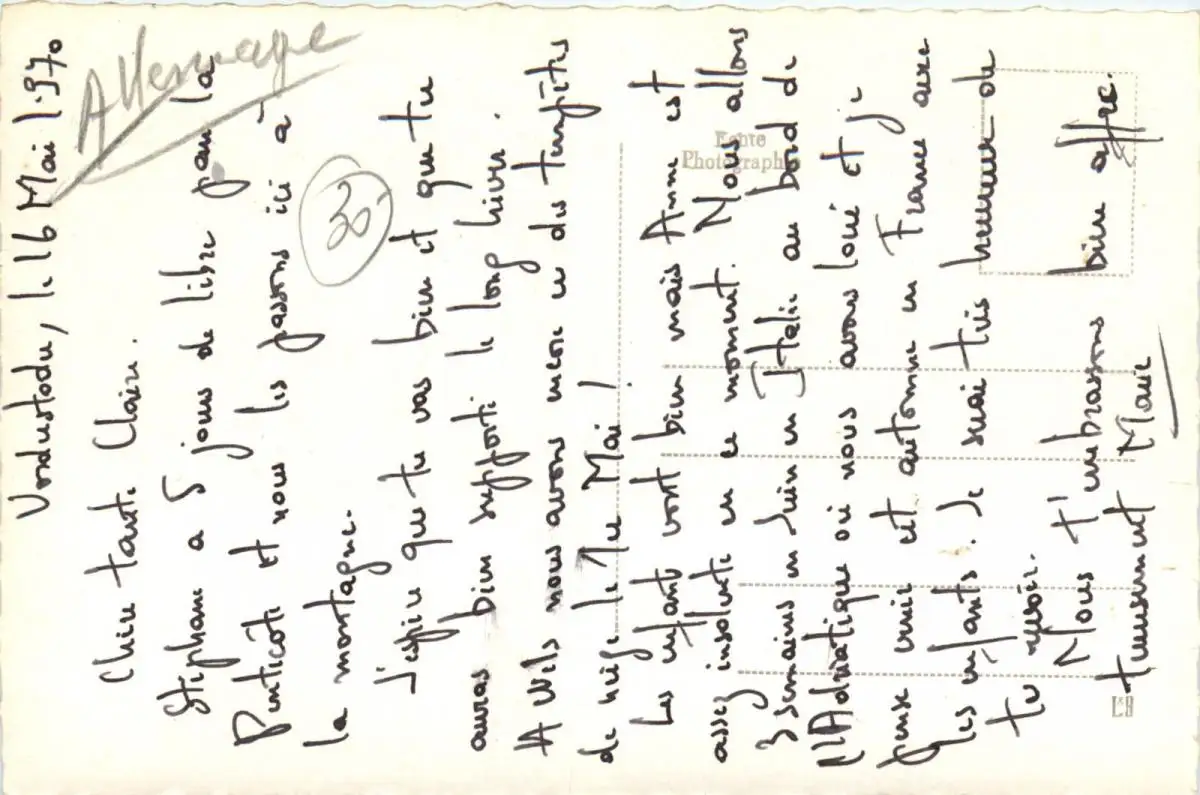 Vorderstoder, le 16 Mai 1970
Allemagne
Chère tante Claire.
Stéphane a 5 jours de libre pour la
Pentecôte et nous les passons ici à
la montagne.
30
J'espère que tu vas bien et que tu
auras bien supporté le long hiver.
A Wels nous avons encore eu des tempêtes
de neige le 1er Mai !
Les enfants vont bien mais Anne est
assez insolente en ce moment. Nous allons
3 semaines en Juin en Italie au bord de
l'Adriatique où nous avons loué et je
pense venir cet automne en France avec
les enfants. Je serai très heureuse de
te revoir.
Nous t'embrassons bien affec.
tueusement Marie
Echte
Photographie